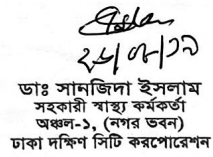 ২৮/০৮/১৯
ডাঃ সানজিদা ইসলাম
সহকারী স্বাস্থ্য কর্মকর্তা
অঞ্চল-১, (নগর ভবন)
ঢাকা দক্ষিণ সিটি করপোরেশন